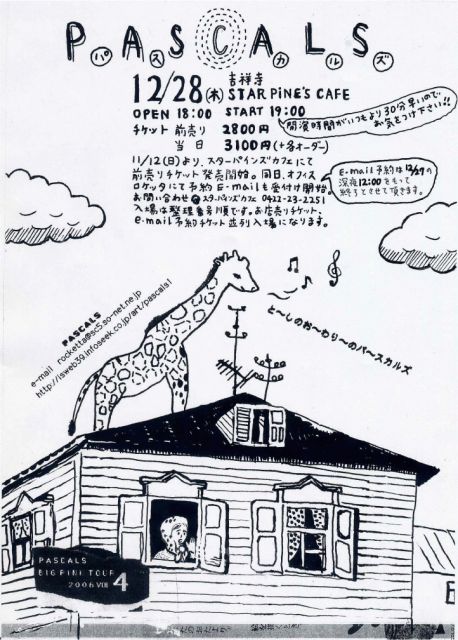 PASCALS
パスカルズ
12/28(木) 吉祥寺 STAR PiNE'S CAFE
OPEN 18:00 START 19:00
チケット 前売り 2800円
当日 3100円(+各オーダー)
開演時間がいつもより30分早いので
お気をつけ下さい!!
11/12(日)より、スターパインズカフェにて
前売りチケット発売開始。同日、オフィス
ロケッタにて予約E-mailも受付け開始。
お問い合わせ スターパインズカフェ 0422-23-2251
入場は整理番号順です。お店売りチケット、
e-mail予約チケット並列入場になります。
E-mail予約は12/27の
深夜12:00をもって
終了とさせて頂きます。
と〜しのお〜わり〜のパ〜スカルズ
PASCALS
e-mail rocketta@sc5.so-net.ne.jp
http://isweb39.infoseek.co.jp/art/pascals1
PASCALS
BIG PINE TOUR
2006 VOL 4